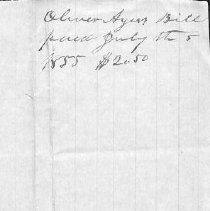 Oliver Ayers Bill
paid July th 5
1855 $2.50